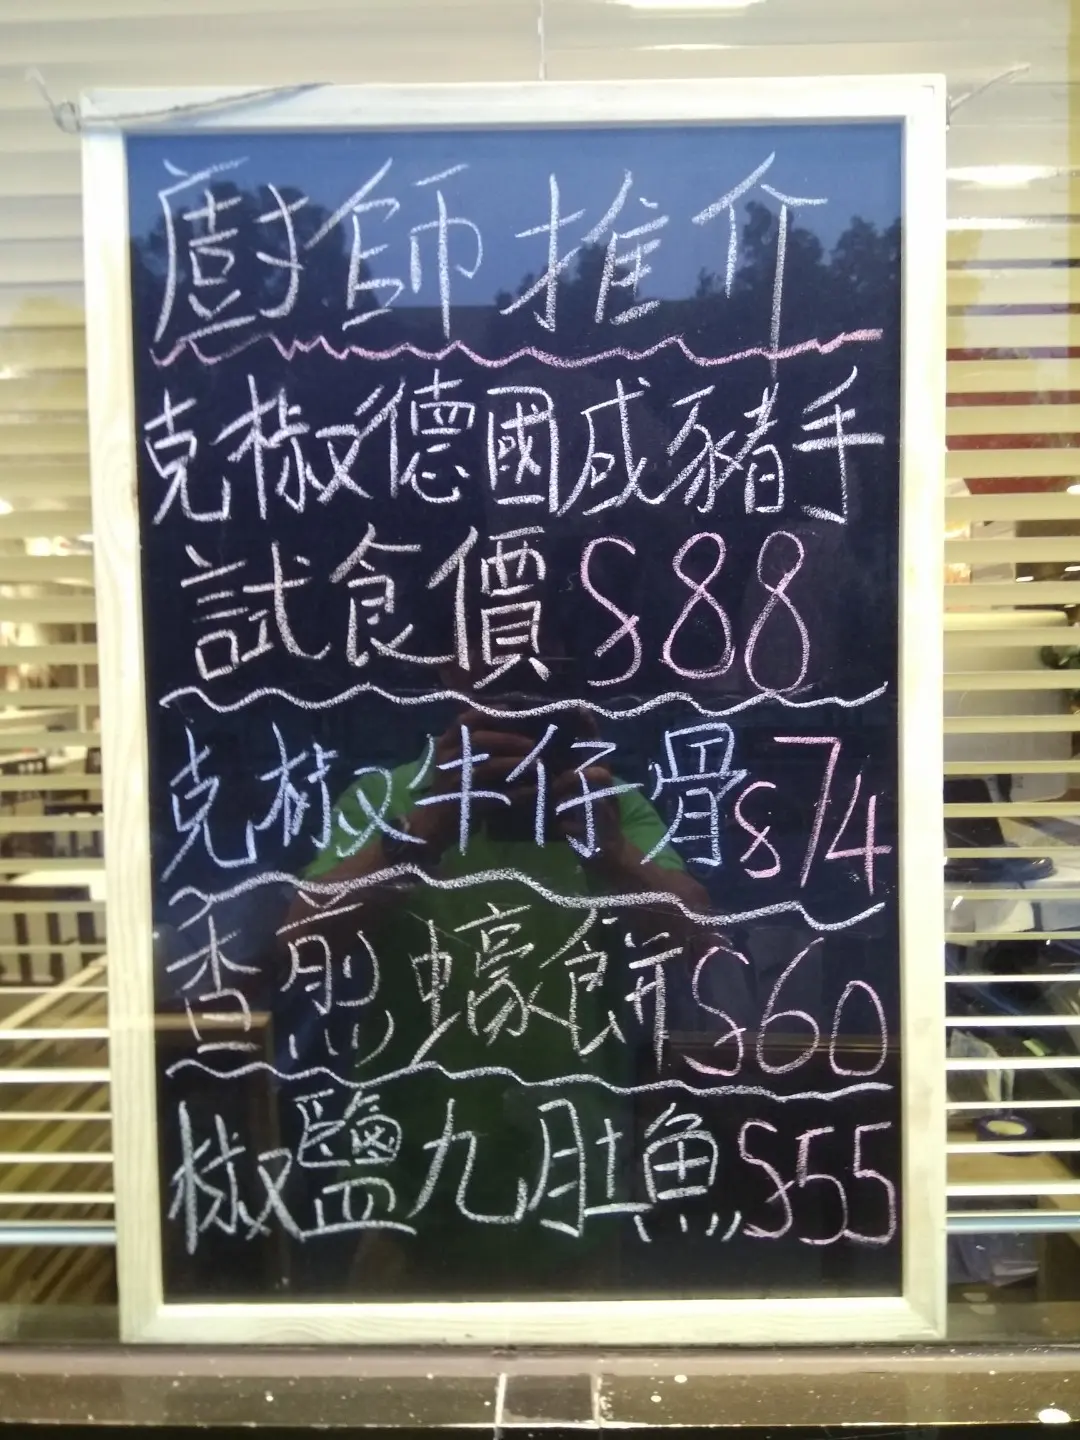 廚師推介
克椒德國咸豬手
試食價$88
克椒牛仔骨$74
香煎蠔餅$60
椒鹽九肚魚$55